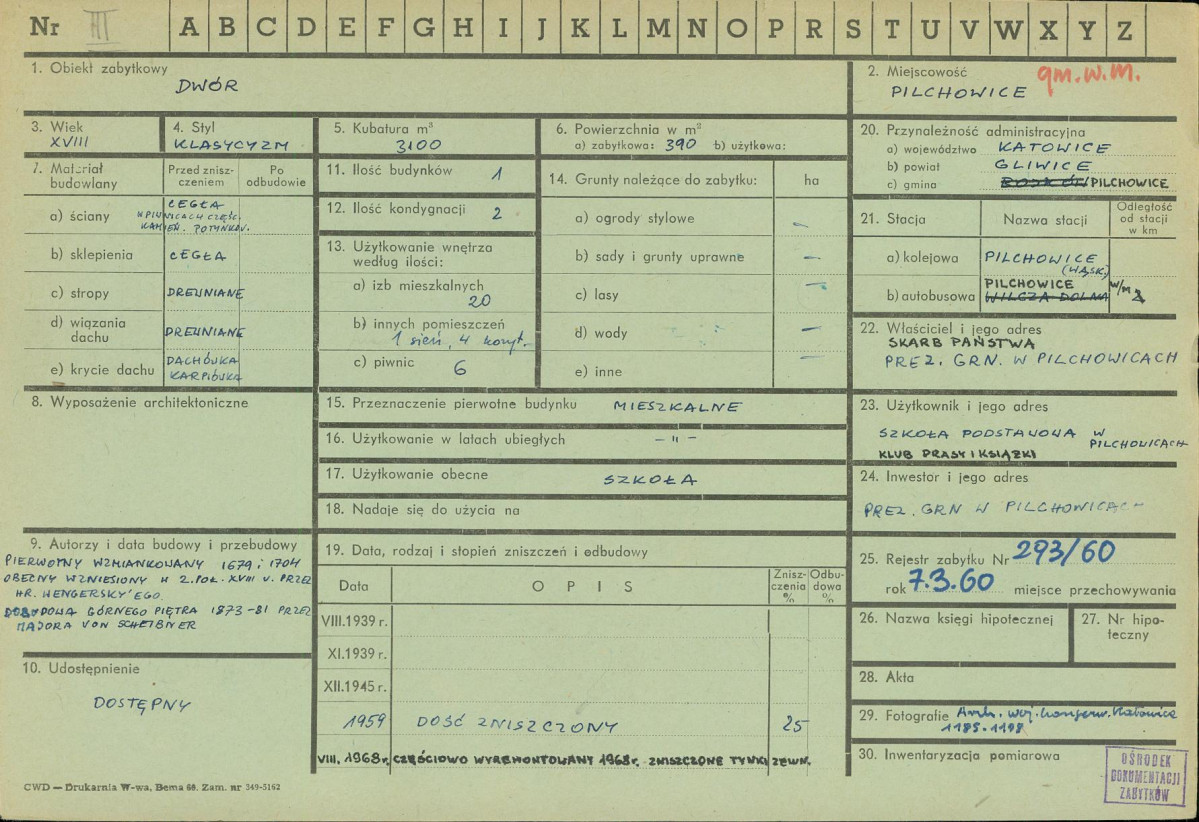 Nr III A B C D E F G H I J K L M N O P R S T U V W X Y Z
1. Obiekt zabytkowy
DWÓR
2. Miejscowość gm. W. M.
PILCHOWICE
3. Wiek
XVIII
4. Styl
KLASYCYZM
5. Kubatura m³
3100
6. Powierzchnia w m²
a) zabytkowa: 390 b) użytkowa:
7. Materiał budowlany
Przed zniszczeniem
Po odbudowie
a) ściany
CEGŁA
W PIWNICACH CZĘŚC.
KAMIEŃ. POTYNKOW.
b) sklepienia CEGŁA
c) stropy DREWNIANE
d) wiązania dachu DREWNIANE
e) krycie dachu
DACHÓWKA
KARPIÓWKA
8. Wyposażenie architektoniczne
9. Autorzy i data budowy i przebudowy
PIERWOTNY WZMIANKOWANY 1679 i 1704
OBECNY WZNIESIONY W 2. POŁ. XVIII w. PRZEZ
HR. WENGERSKY'EGO.
DOBUDOWA GÓRNEGO PIĘTRA 1873-81 PRZEZ
MAJORA VON SCHEIBNER
10. Udostępnienie
DOSTĘPNY
11. Ilość budynków 1
12. Ilość kondygnacji 2
13. Użytkowanie wnętrza
według ilości:
a) izb mieszkalnych
20
b) innych pomieszczeń
1 sień, 4 koryt.
c) piwnic 6
14. Grunty należące do zabytku: ha
a) ogrody stylowe –
b) sady i grunty uprawne –
c) lasy –
d) wody –
e) inne –
15. Przeznaczenie pierwotne budynku MIESZKALNE
16. Użytkowanie w latach ubiegłych – " –
17. Użytkowanie obecne SZKOŁA
18. Nadaje się do użycia na
19. Data, rodzaj i stopień zniszczeń i odbudowy
Data OPIS Zniszczenia % Odbudowa %
VIII.1939 r.
XI.1939 r.
XII.1945 r.
1959 DOŚĆ ZNISZCZONY 25
VIII. 1968 r. CZĘŚCIOWO WYREMONTOWANY 1968 r. ZNISZCZONE TYNKI ZEWN.
20. Przynależność administracyjna
a) województwo KATOWICE
b) powiat GLIWICE
c) gmina PILCHOWICE
21. Stacja Nazwa stacji Odległość od stacji w km
a) kolejowa PILCHOWICE
(WĄSK.)
b) autobusowa PILCHOWICE w/m
WILCZA DOLNA 2
22. Właściciel i jego adres
SKARB PAŃSTWA
PREZ. GRN. W PILCHOWICACH
23. Użytkownik i jego adres
SZKOŁA PODSTAWOWA W PILCHOWICACH
KLUB PRASY I KSIĄŻKI
24. Inwestor i jego adres
PREZ. GRN W PILCHOWICACH
25. Rejestr zabytku Nr 293/60
rok 7.3.60 miejsce przechowywania
26. Nazwa księgi hipotecznej
27. Nr hipoteczny
28. Akta
29. Fotografie Arch. woj. konserw. Katowice
1195-1198
30. Inwentaryzacja pomiarowa
OŚRODEK
DOKUMENTACJI
ZABYTKÓW
CWD — Drukarnia W-wa, Bema 60. Zam. nr 349-5162